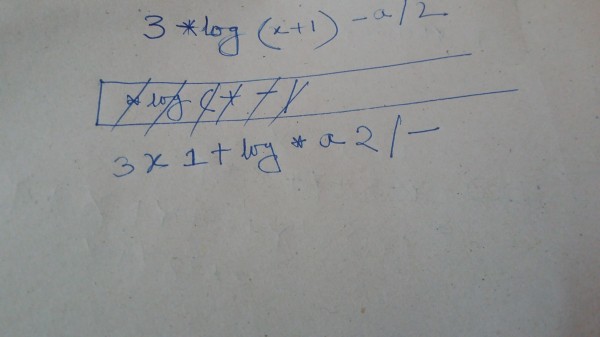 3 * log (x+1) - a/2
* log ( + - /
3 x 1 + log * a 2 / -